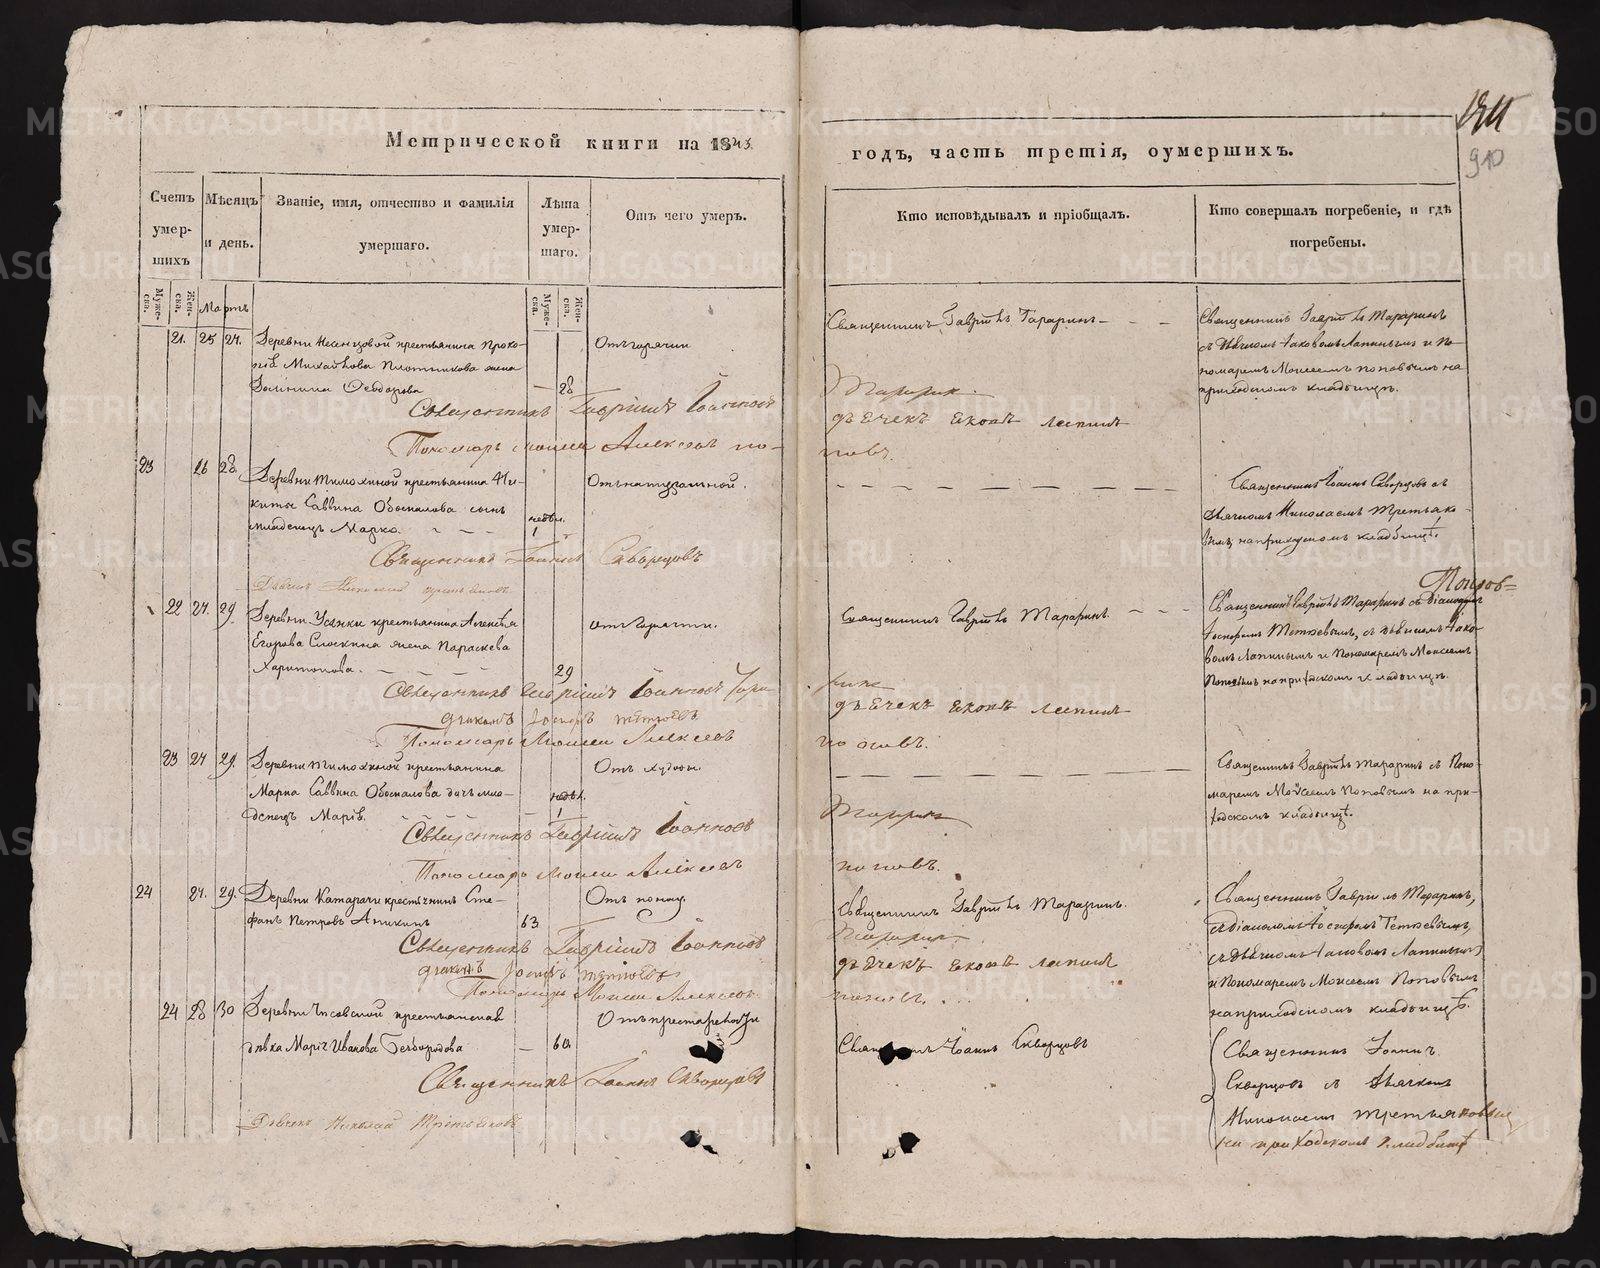 Метрической книги на 1843.
годъ, часть третія, оумершихъ.
910
Счетъ умер-шихъ
Мѣсяцъ и день.
Званіе, имя, отчество и фамилія умершаго.
Лѣта умер-шаго.
Отъ чего умеръ.
Кто исповѣдывалъ и пріобщалъ.
Кто совершалъ погребеніе, и гдѣ погребены.
Муже-ска.
Жен-ска.
Мартъ
Муже-ска.
Жен-ска.
21. 25 27. Деревни крестьянина Проко-
пія Михайлова Плотникова жена
Ѳеодорова — 28
Отъ горячки
Священникъ Гавріилъ Тараринъ — — —
Священникъ Гавріилъ Тараринъ
съ Дьячкомъ Іаковомъ Лапинымъ и По-
номаремъ Моисеемъ Поповымъ на
приходскомъ кладбищѣ.
Священникъ Гавріилъ Іоанновъ
Тараринъ.
дьечекъ Ековъ Лепинъ
Пономарь Моисей Алексеевъ по-
повъ.
23 26 28. Деревни Тимохиной крестьянина Ни-
киты Саввина Обоскалова сынъ
младенецъ Марко. — — —
недѣл.
1
Отъ натуральной.
— — — — — — — —
Священникъ Іоаннъ Скворцовъ съ
Дьячкомъ Николаемъ Третьяко-
вымъ на приходскомъ кладбищѣ.
Священникъ Іоаннъ Скворцовъ
Дьячекъ Николай Третьяковъ
22 27. 29. Деревни Усянки крестьянина Алексѣя
Егорова Слоскина жена Параскева
Харитонова. — — —
29
Отъ горячки.
Священникъ Гавріилъ Тараринъ. — — —
Священникъ Гавріилъ Тараринъ съ Діакономъ
Іосифомъ Тетюевымъ, съ Дьячкомъ Іако-
вомъ Лапинымъ и Пономаремъ Моисеемъ
Поповымъ на приходскомъ кладбищѣ.
Священникъ Гавріилъ Іоанновъ Тара-
ринъ
диаконъ Іосифъ тетюевъ
дьечекъ Екопъ Лепинъ
Пономарь Моисей Алексеевъ
поповъ.
23 27 29. Деревни Тимохиной крестьянина
Марка Саввина Обоскалова дочь мла-
денецъ Марія.
недѣл.
1
Отъ худобы.
— — — — — — — —
Священникъ Гавріилъ Тараринъ съ Поно-
маремъ Моисеемъ Поповымъ на при-
ходскомъ кладбищѣ.
Священникъ Гавріилъ Іоанновъ
Тараринъ
Пономарь Моисей Алексеевъ
поповъ.
24 27. 29. Деревни Катарачи крестьянинъ Сте-
фанъ Петровъ Аникинъ
63
Отъ поносу.
Священникъ Гавріилъ Тараринъ.
Священникъ Гавріилъ Тараринъ,
съ Діакономъ Іосифомъ Тетюевымъ,
съ Дьячкомъ Іаковомъ Лапинымъ
и Пономаремъ Моисеемъ Поповымъ
на приходскомъ кладбищѣ.
Священникъ Гавріилъ Іоанновъ
Тараринъ
диаконъ Іосифъ тетюевъ
дьечекъ Екопъ Лепинъ
Пономарь Моисей Алексеевъ
поповъ.
24 28 30 Деревни Чусовской крестьянская
дѣвка Марія Иванова Бехоридова — 60
Отъ престарѣлости
Священникъ Іоаннъ Скворцовъ
Священникъ Іоаннъ
Скворцовъ съ Дьячкомъ
Николаемъ Третьяковым
на приходскомъ кладбищѣ
Священникъ Іоаннъ Скворцовъ
Дьячекъ Николай Третьяковъ
METRIKI.GASO-URAL.RU